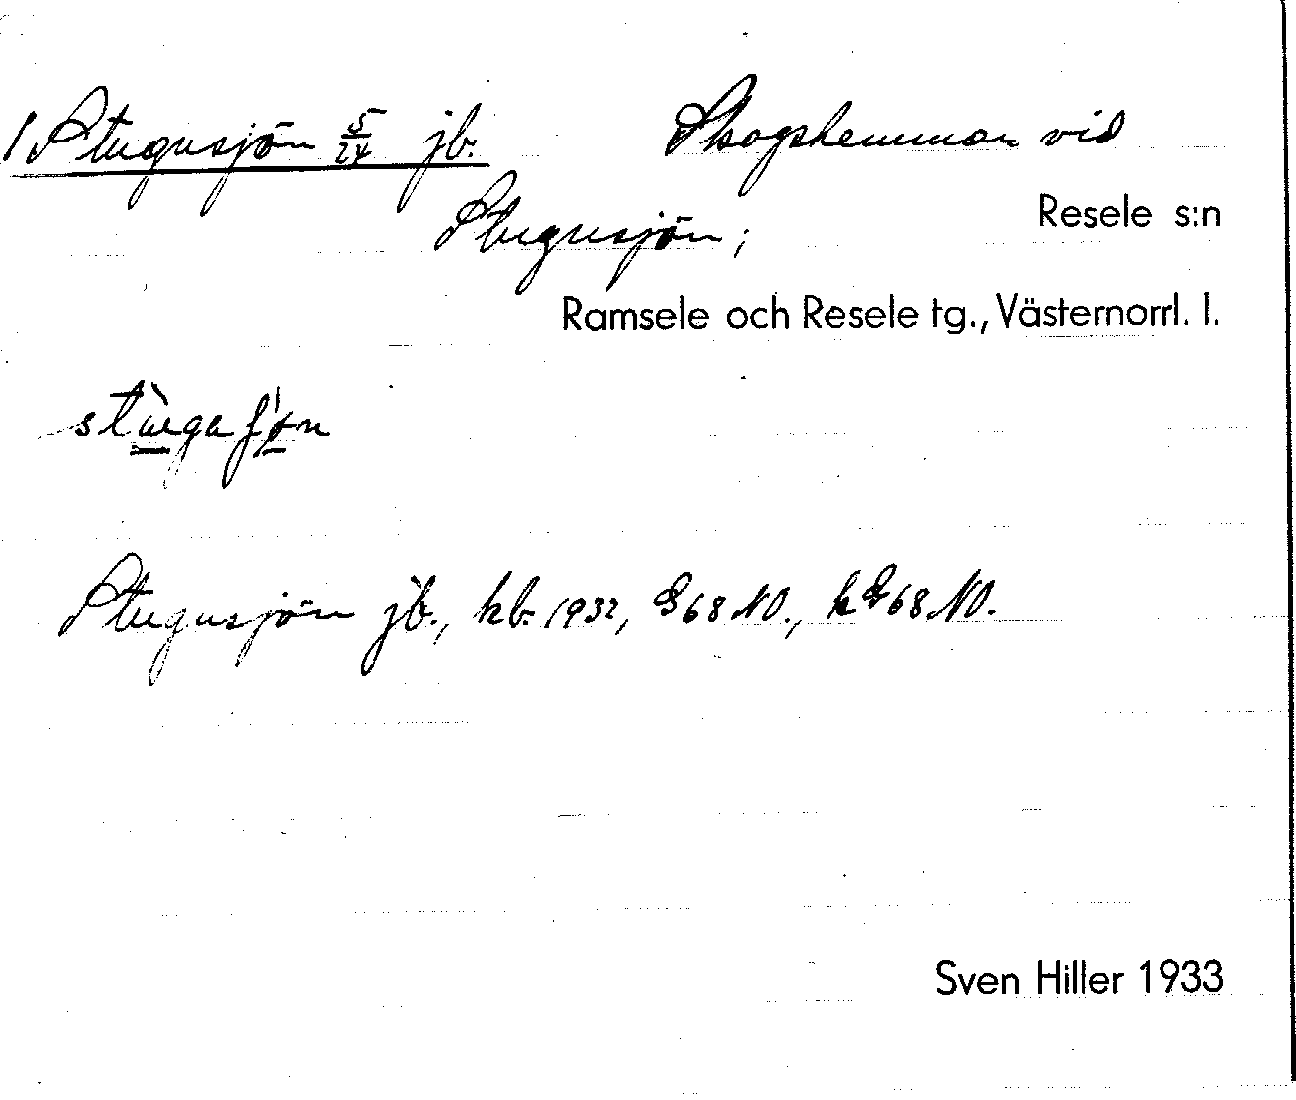 1 Stugusjön 5/24 jb. Skogshemman vid
Resele s:n
Stugusjön;
Ramsele och Resele tg., Västernorrl. l.
Stugusjön jb., kb. 1932, G68 NO., kG68 NO.
Sven Hiller 1933